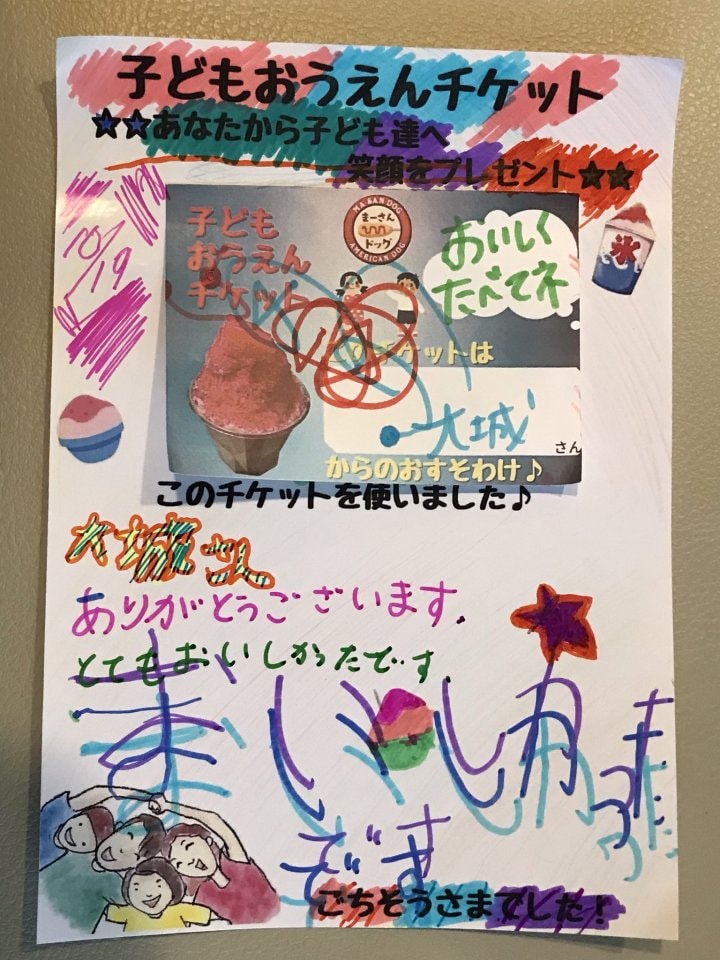 子どもおうえんチケット
★★あなたから子ども達へ
笑顔をプレゼント★★
10/19
氷
子ども
おうえん
チケット
MASAN DOG
まーさん
ドッグ
AMERICAN DOG
おいしく
たべてネ
このチケットは
大城
さん
からのおすそわけ♪
このチケットを使いました♪
大城さん
ありがとうございます.
とてもおいしかったです.
おいしかった
です
ごちそうさまでした！